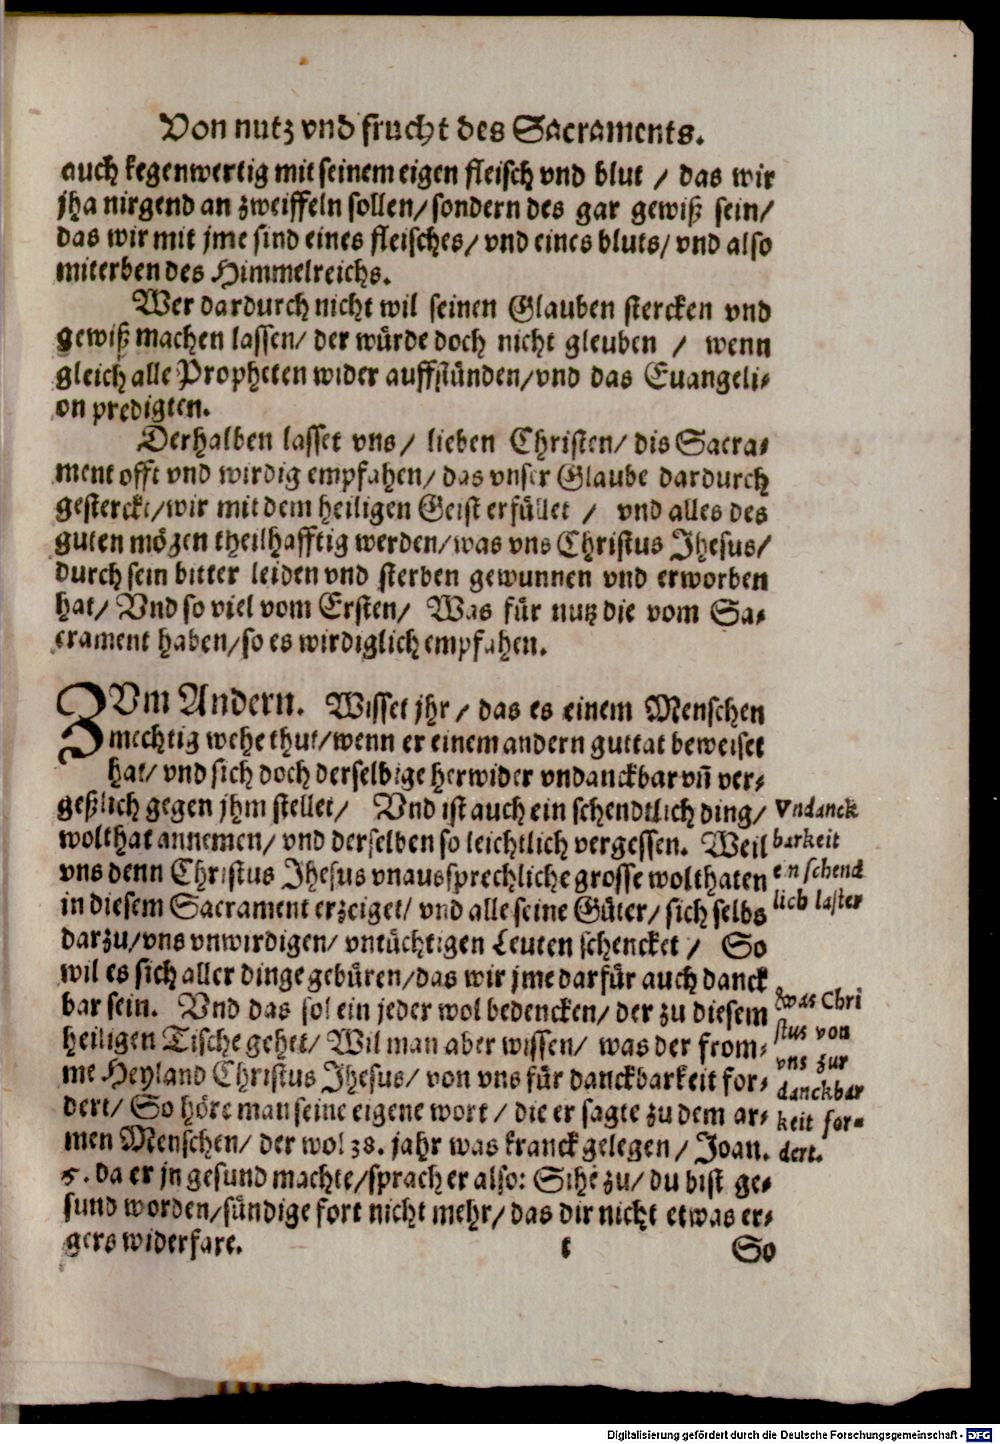 Von nutz vnd frucht des Sacraments.
auch kegenwertig mit seinem eigen fleisch vnd blut / das wir
jha nirgend an zweiffeln sollen/ sondern des gar gewiß sein/
das wir mit jme sind eines fleisches/ vnd eines bluts/ vnd also
miterben des Himmelreichs.
Wer dardurch nicht wil seinen Glauben stercken vnd
gewiß machen lassen/ der würde doch nicht gleuben / wenn
gleich alle Propheten wider auffstünden/ vnd das Euangeli-
on predigten.
Derhalben lasset vns/ lieben Christen/ dis Sacra-
ment offt vnd wirdig empfahen/ das vnser Glaube dardurch
gesterckt/ wir mit dem heiligen Geist erfüllet / vnd alles des
guten mögen theilhafftig werden/ was vns Christus Jhesus/
durch sein bitter leiden vnd sterben gewunnen vnd erworben
hat/ Vnd so viel vom Ersten/ Was für nutz die vom Sa-
crament haben/ so es wirdiglich empfahen.
ZVm Andern. Wisset jhr/ das es einem Menschen
mechtig wehe thut/ wenn er einem andern guttat beweiset
hat/ vnd sich doch derselbige herwider vndanckbar vn̄ ver-
geßlich gegen jhm stellet/ Vnd ist auch ein schendtlich ding/
wolthat annemen/ vnd derselben so leichtlich vergessen. Weil
vns denn Christus Jhesus vnaussprechliche grosse wolthaten
in diesem Sacrament erzeiget/ vnd alle seine Güter/ sich selbs
darzu/ vns vnwirdigen/ vntüchtigen Leuten schencket / So
wil es sich aller dinge gebüren/ das wir jme darfür auch danck
bar sein. Vnd das sol ein jeder wol bedencken/ der zu diesem
heiligen Tische gehet/ Wil man aber wissen/ was der from-
me Heyland Christus Jhesus/ von vns für danckbarkeit for-
dert/ So höre man seine eigene wort/ die er sagte zu dem ar-
men Menschen/ der wol 38. jahr was kranck gelegen/ Joan.
5. da er jn gesund machte/ sprach er also: Sihe zu/ du bist ge-
sund worden/ sündige fort nicht mehr/ das dir nicht etwas er-
gers widerfare.
t So
Vndanck
barkeit
ein schend
lich laster
Was Chri
stus von
vns zur
danckbar
keit for-
dert.
Digitalisierung gefördert durch die Deutsche Forschungsgemeinschaft - DFG